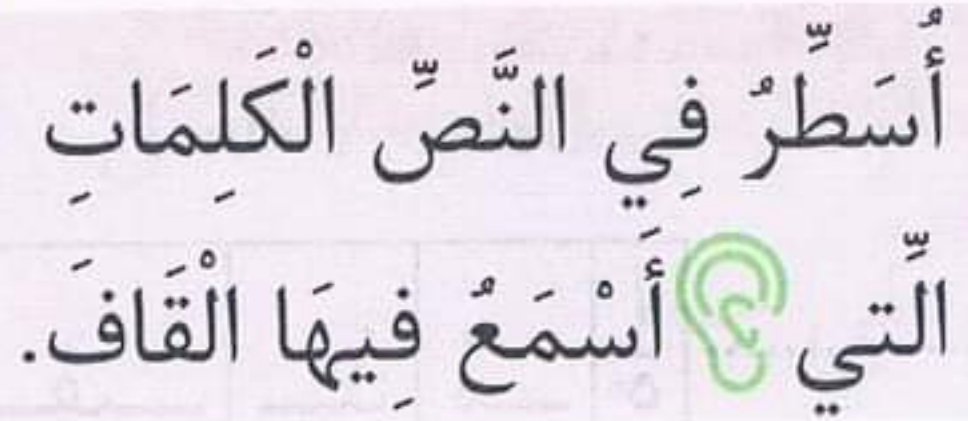 أُسَطِّرُ فِي النَّصِّ الْكَلِمَاتِ
الَّتي أَسْمَعُ فِيهَا الْقَافَ.